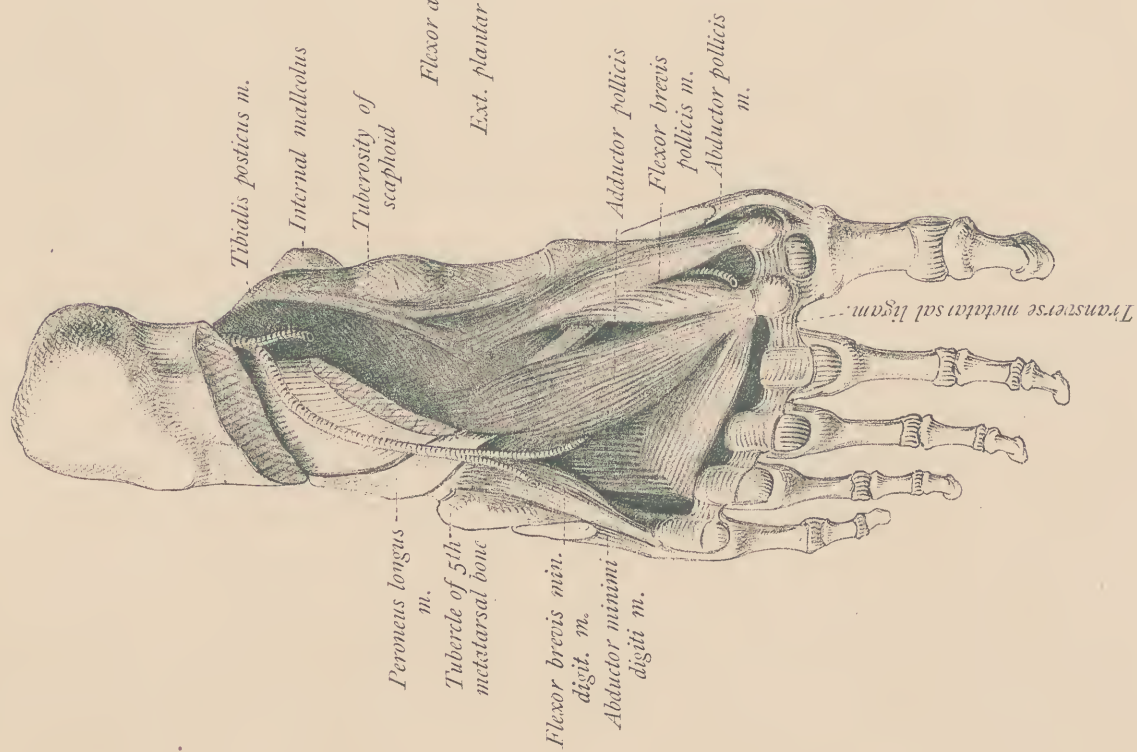 Tibialis posticus m.
Internal malleolus
Tuberosity of
scaphoid
Flexor a
Ext. plantar
Adductor pollicis
Flexor brevis
pollicis m.
Abductor pollicis
m.
Transverse metatarsal ligam.
Peroneus longus
m.
Tubercle of 5th
metatarsal bone
Flexor brevis min.
digit. m.
Abductor minimi
digiti m.